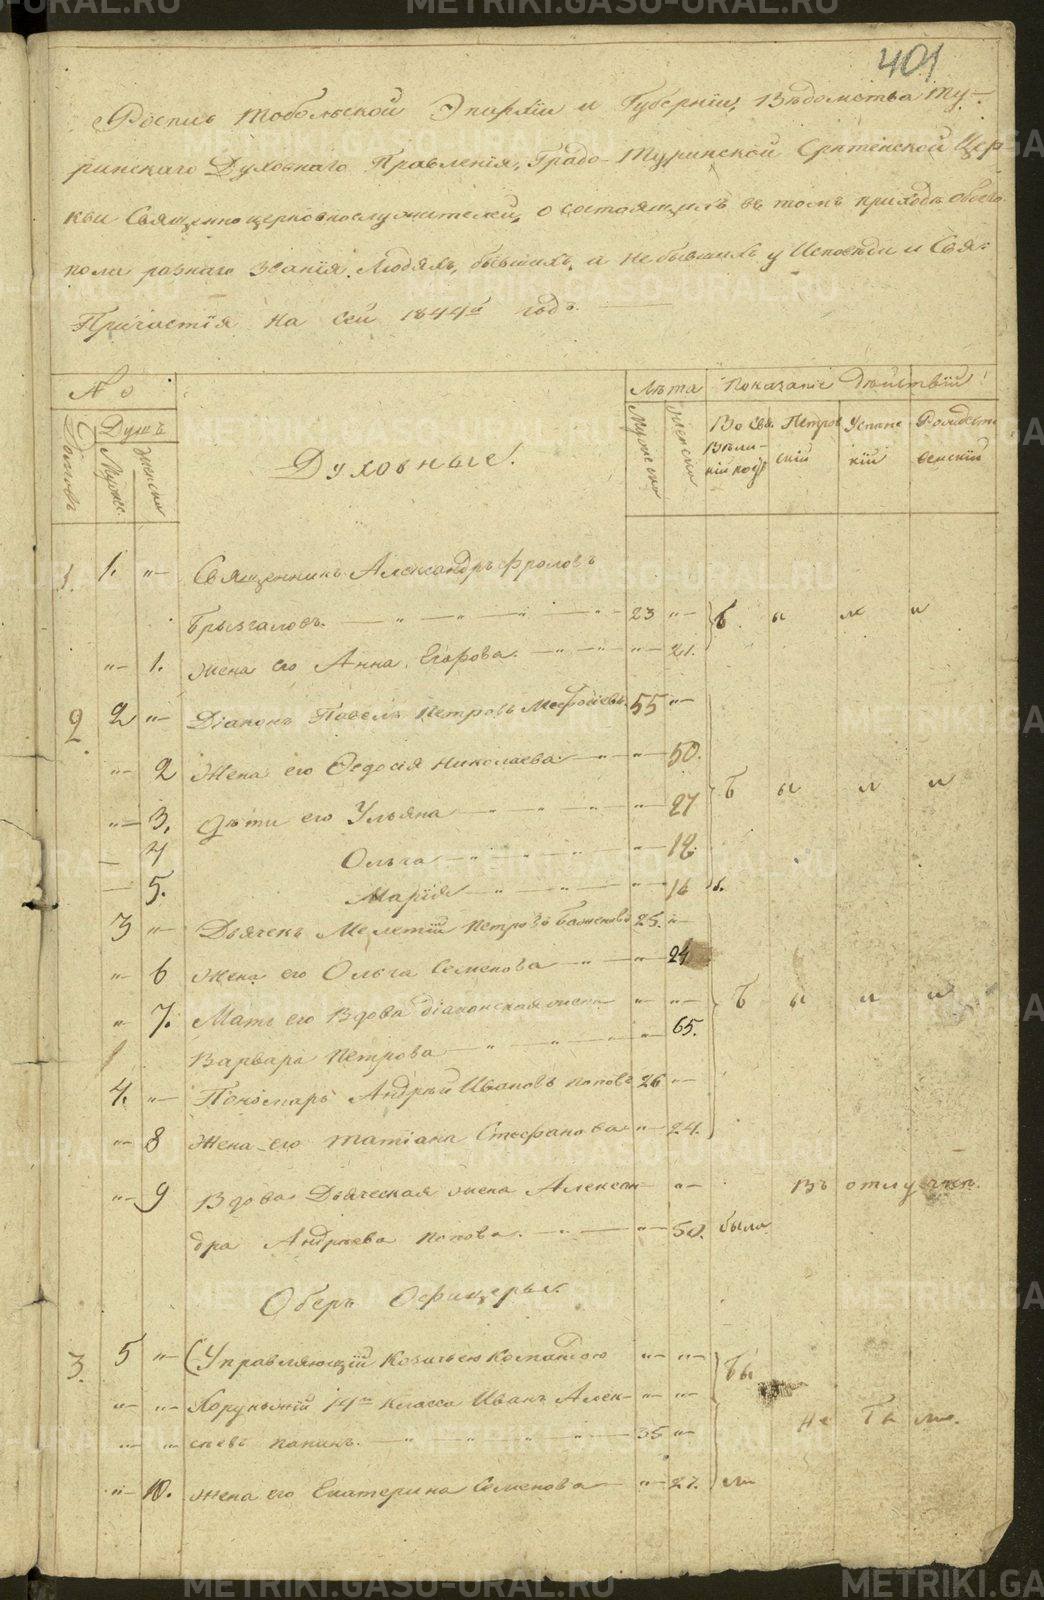 401
Роспись Тобольской Эпархіи и Губерніи, Вѣдомства Ту-
ринскаго Духовнаго Правленія, Градо-Туринской Срѣтенской Цер
кви Священноцерковнослужителей, о состоящихъ въ томъ приходѣ обоего
пола разнаго званія людяхъ, бывшихъ, и небывшихъ у Исповѣди и Свя:
Причастія на сей 1844й годъ.
№
Лѣта Показаніе дѣйствій
Домовъ Душъ Мужес. Женска
Духовные.
Мужеска Женска
Во Свя. Вели- кій постъ Петров скій Успенс кій Рождеств венскій
1. 1. "— Священникъ Александръ Фроловъ
Брызгаловъ. 23 "— б ы л и
"— 1. жена его Анна Егорова. "— 21.
2 2 "— Діаконъ Павелъ Петровъ Мефодіевъ. 55 "—
"— 2 Жена его Ѳедосія Николаева "— 50.
б ы л и
"— 3. Дѣти его Ульяна "— 27
— 4 Ольга "— 18.
— 5. Марія "— 16
3 "— Дьячекъ Мелетій Петровъ Баженовъ 25. "—
"— 6 жена его Ольга Семенова "— 24
"— 7. Мать его вдова діаконская жена "— "— б ы л и
Варвара Петрова "— 65.
4. "— Пономарь Андрей Ивановъ Поповъ 26 "—
"— 8 Жена его Татіана Стефанова "— 24.
"— 9 Вдова Дьяческая жена Алексан "— Въ отлучкѣ.
дра Андреева Попова. "— 50. была
Оберъ Офицеры.
3. 5 "— Управляющій Козачьею командою "— "— бы
"— "— Хорунжій 14го класса Иванъ Алек- "— "—
не бы ли.
"— "— сѣевъ Панинъ. 35 "—
"— 10. жена его Екатерина Семенова "— 27. ли
METRIKI.GASO-URAL.RU